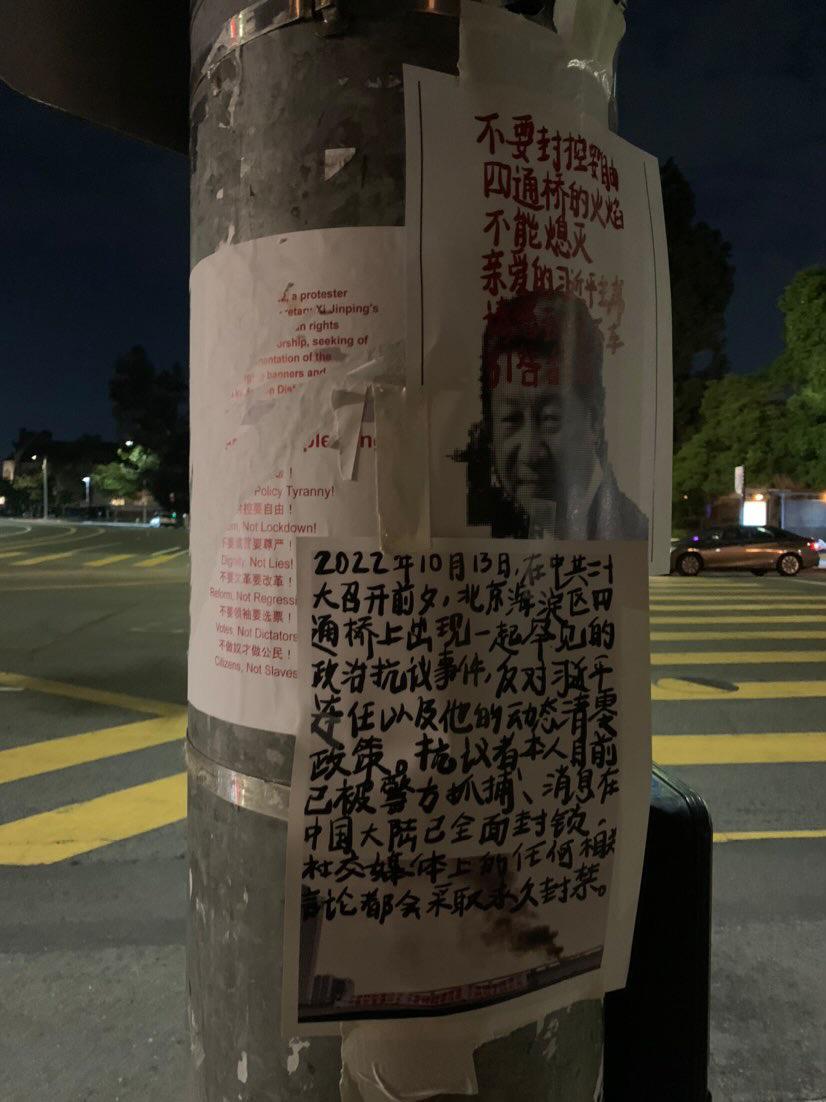 不要封控要自由
四通桥的火焰
不能熄灭
亲爱的习近平主席
车
引咎
a protester
retary Xi Jinping's
rights
orship, seeking of
entation of the
banners and
Policy Tyranny!
控要自由！
Not Lockdown!
不要谎言要尊严！
Dignity, Not Lies!
不要文革要改革！
Reform, Not Regressi
不要领袖要选票！
Votes, Not Dictators
不做奴才做公民！
Citizens, Not Slaves
2022年10月13日,在中共二十
大召开前夕,北京海淀区四
通桥上出现一起罕见的
政治抗议事件,反对习近平
连任以及他的动态清零
政策。抗议者本人目前
已被警方抓捕、消息在
中国大陆已全面封锁,
社交媒体上的任何相关
言论都会采取永久封禁。